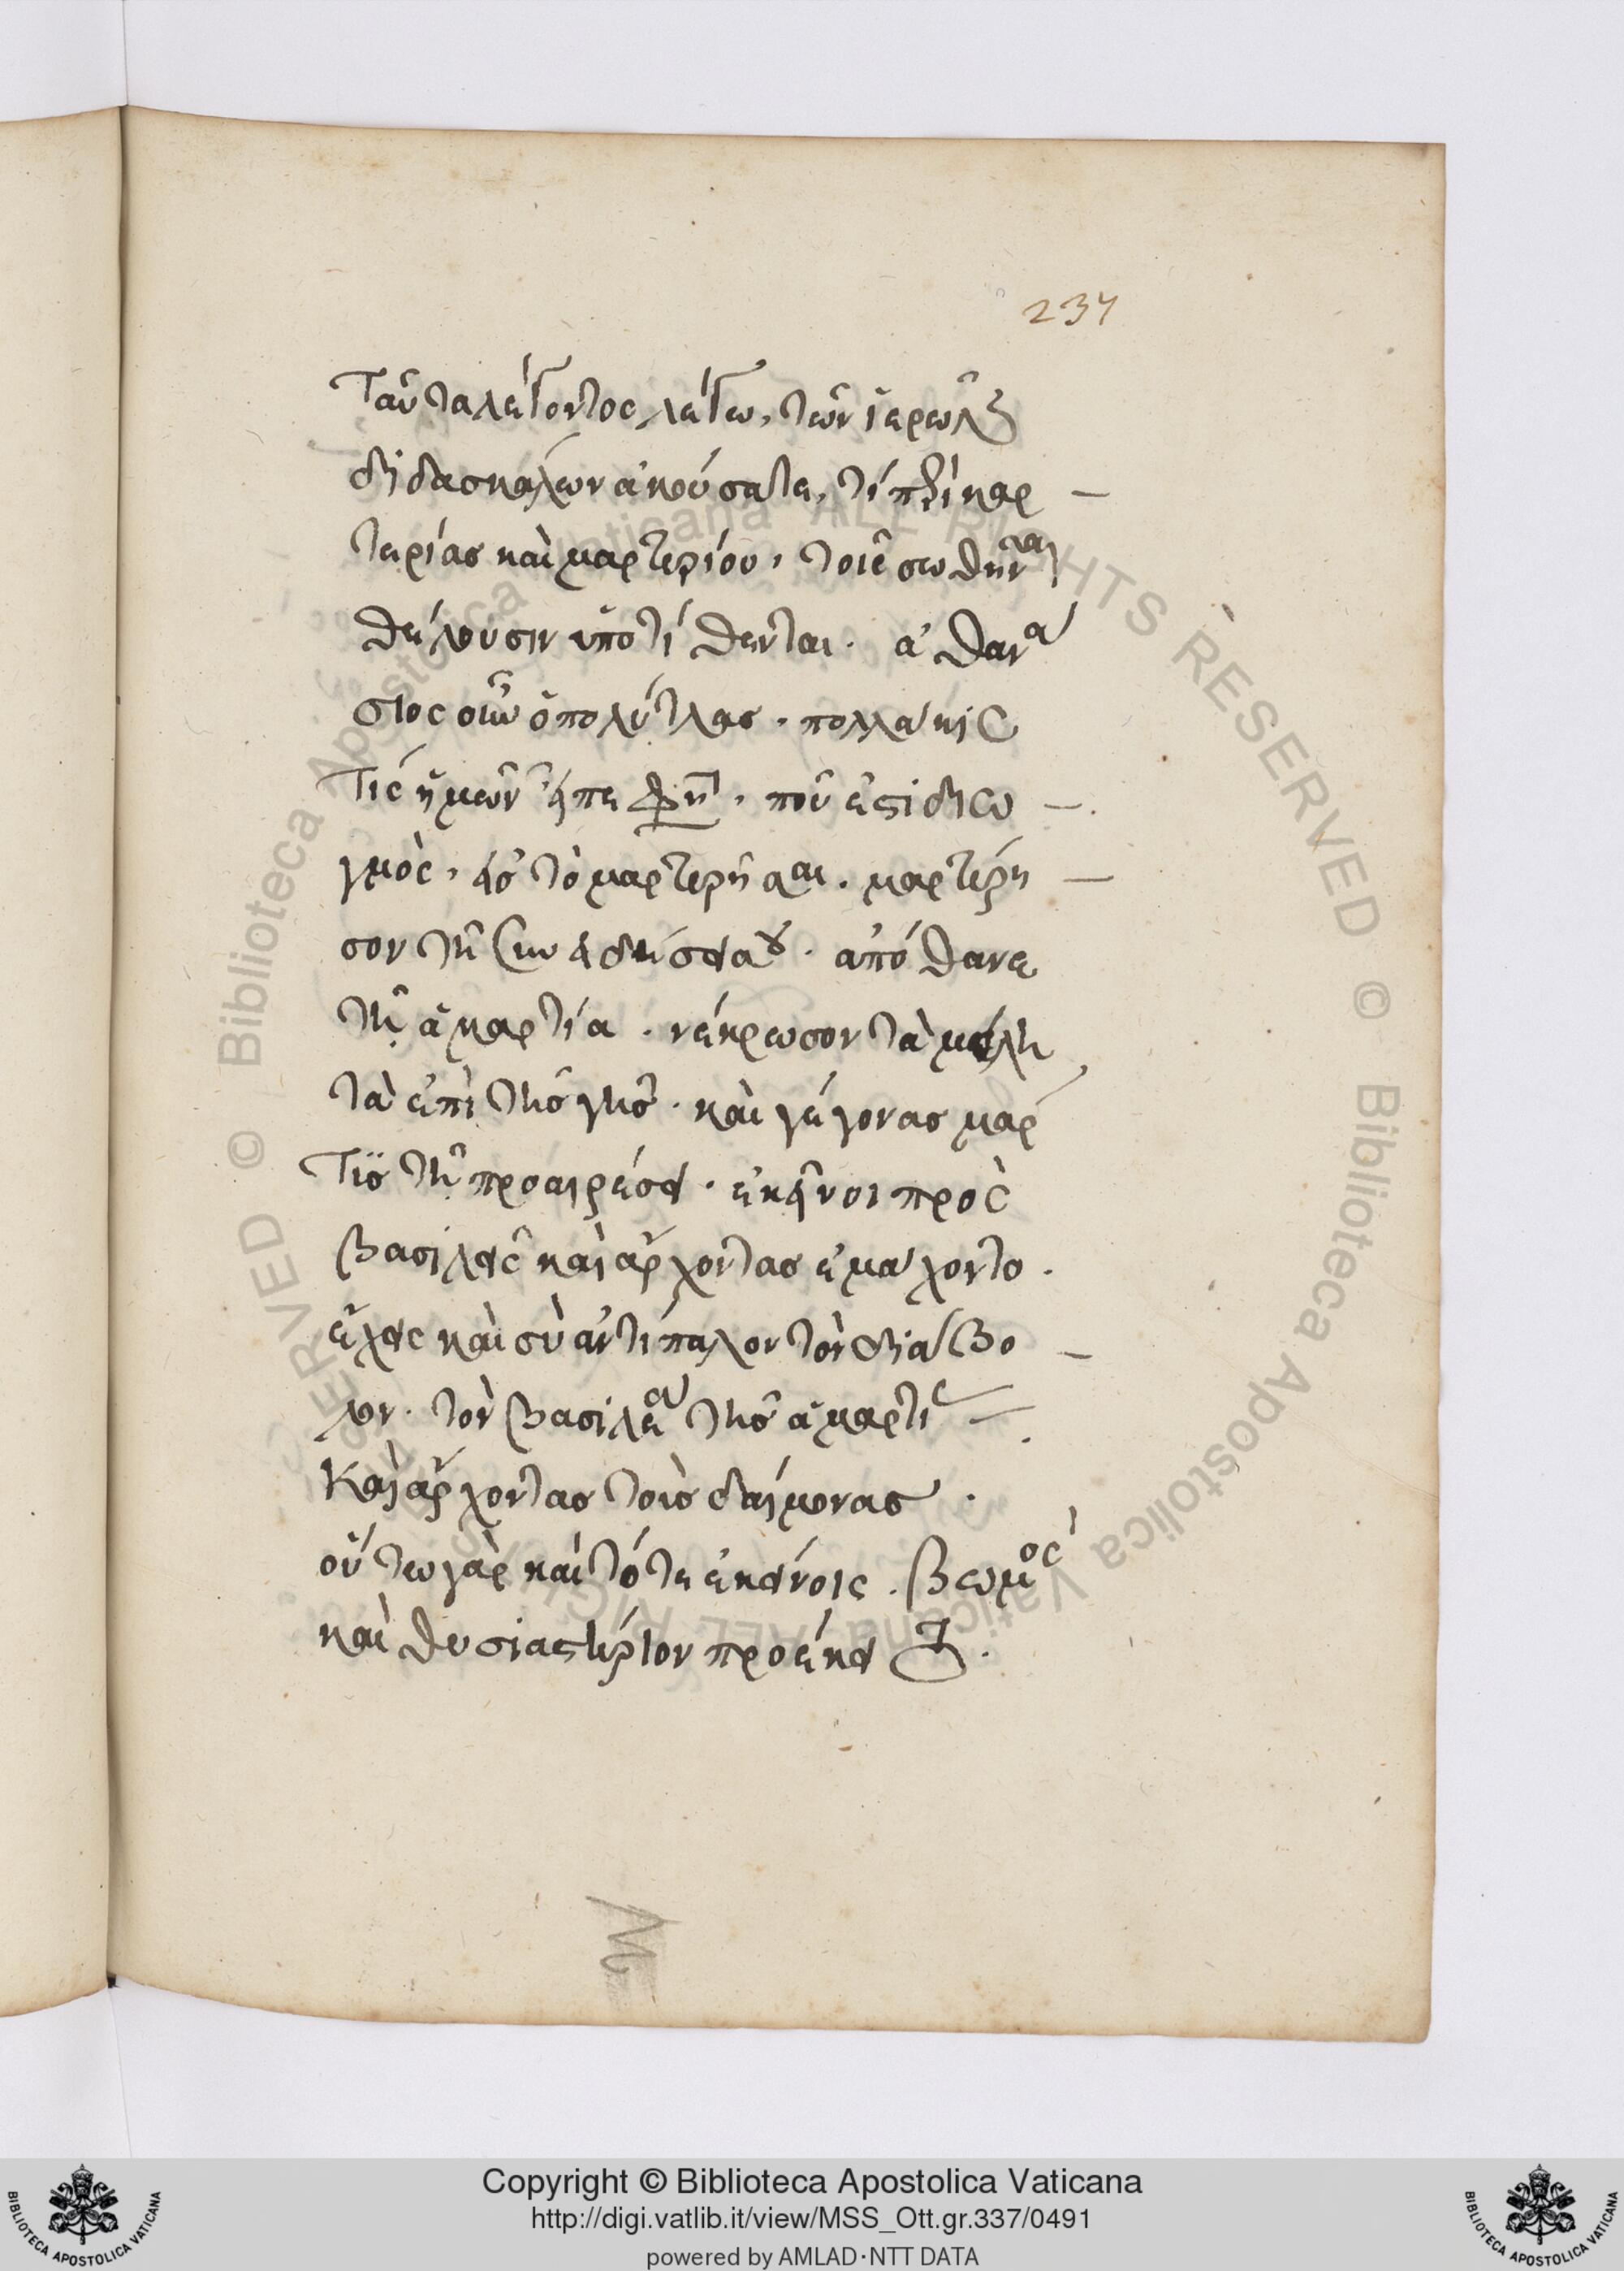 237
Ταῦτα λέγοντος λέγω, τῶν ἱερῶν
διδασκάλων ἀκούσατε, τί περὶ καρ –
τερίας καὶ μαρτυρίου, τοῖς σωθῆναι
θέλουσιν ὑποτίθενται. ἀθανά
σιος οὖν ὁ πολύτλας. πολλάκις
τίς ἡμῶν εἴπε φη, ποῦ ἐστι διω –
γμὸς, εἰς τὸ μαρτυρῆσαι. μαρτύρη –
σον τῇ συνειδήσει σου. ἀπόθανε
τῇ ἁμαρτία. νέκρωσον τὰ μέλη
τὰ ἐπὶ τῆς γῆς. καὶ γέγονας μάρ
τις τῇ προαιρέσει. ἐκεῖνοι πρὸς
βασιλεῖς καὶ ἄρχοντας ἐμάχοντο.
ἔχεις καὶ σὺ ἀντίπαλον τὸν διάβο –
λον. τὸν βασιλέα τῆς ἁμαρτίας
καὶ ἄρχοντας τοὺς δαίμονας.
οὕτω γὰρ καὶ τότε ἐκείνοις. βωμὸς
καὶ θυσιαστήριον προέκειτο.
Copyright © Biblioteca Apostolica Vaticana
http://digi.vatlib.it/view/MSS_Ott.gr.337/0491
powered by AMLAD·NTT DATA
© Biblioteca Apostolica Vaticana ALL RIGHTS RESERVED © Biblioteca Apostolica Vaticana ALL RIGHTS RESERVED
BIBLIOTECA APOSTOLICA VATICANA
BIBLIOTECA APOSTOLICA VATICANA